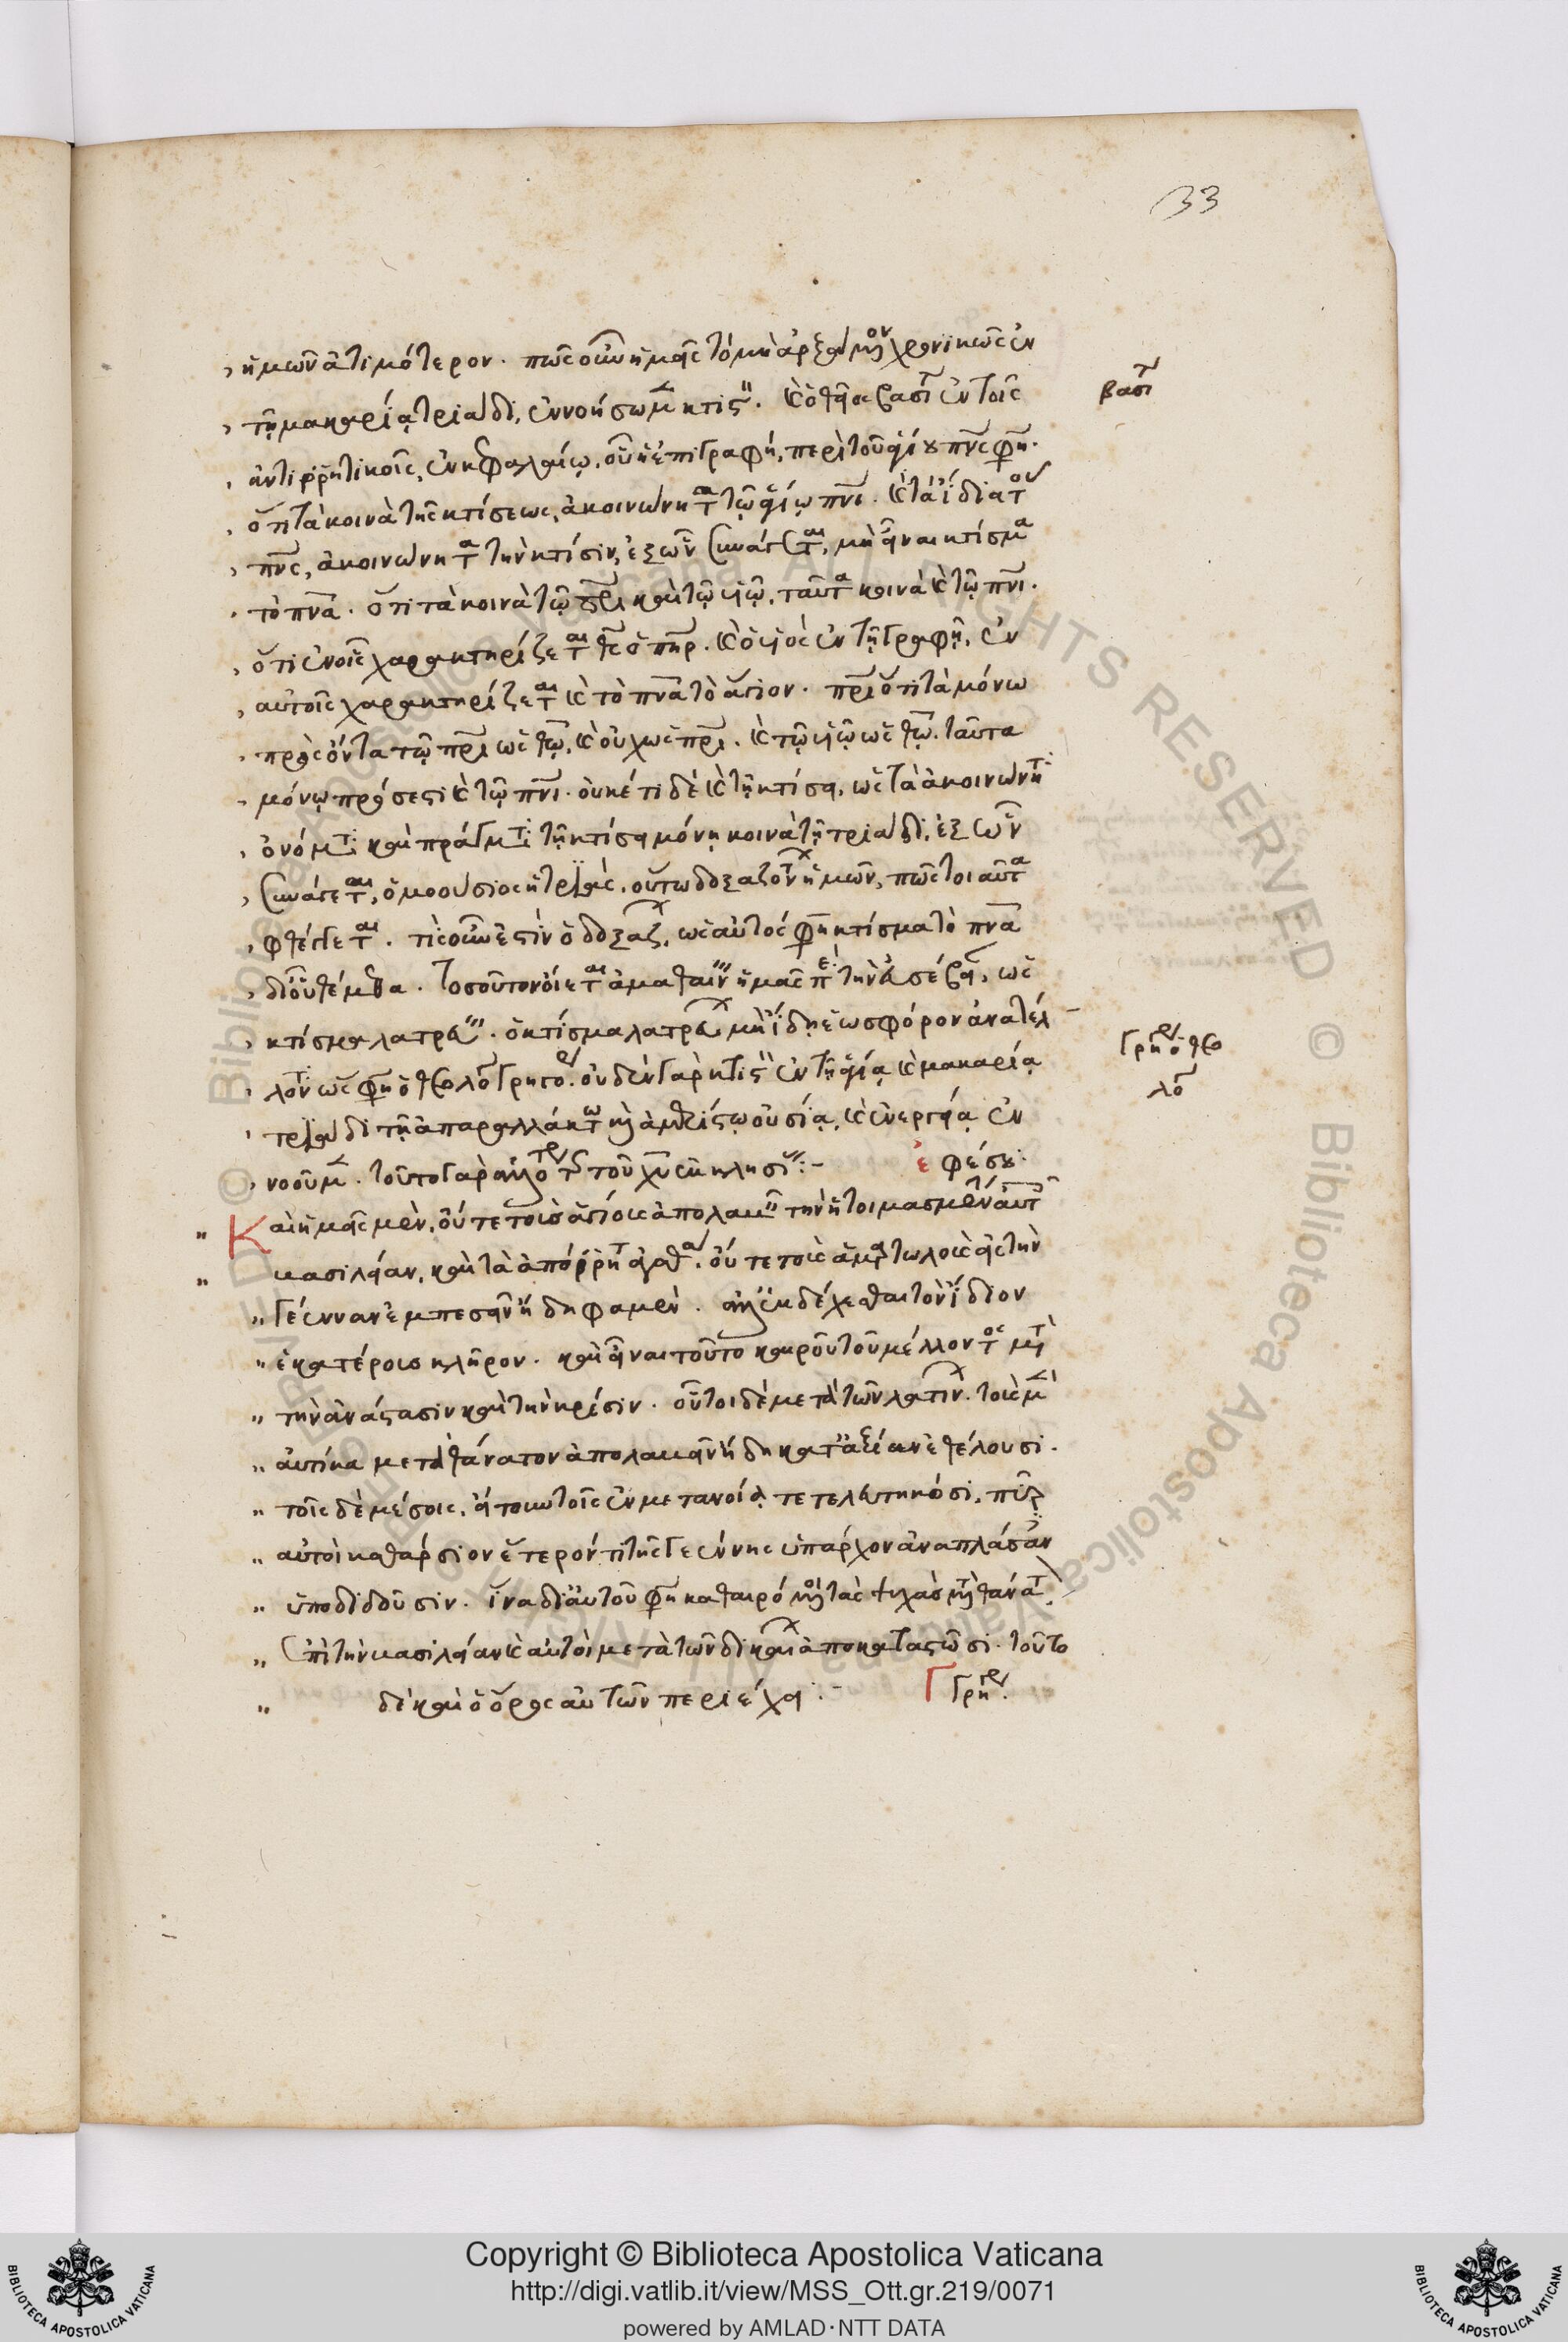 33
ἡμῶν ἀτιμότερον. πῶς οὖν ἡμᾶς τὸ μὴ ἀρξάμενον χρονικῶς ἐν
τῇ μακαρίᾳ τριάδι, ἐννοήσωμεν κτιστόν. καὶ ὁ θεῖος βασίλειος ἐν τοῖς
βασί
ἀντιρρητικοῖς, ἐν κεφαλαίῳ, οὗ ἡ ἐπιγραφή, περὶ τοῦ ἁγίου πνς φησι.
ὅτι τὰ κοινὰ τῆς κτίσεως, ἀκοινώνητα τῷ ἁγίῳ πνι. καὶ τὰ ἴδια τοῦ
πνς, ἀκοινώνητα τὴν κτίσιν, ἐξ ὧν συνάγεται, μὴ εἶναι κτίσμα
τὸ πνα. ὅτι τὰ κοινὰ τῷ πρι καὶ τῷ υἱῷ, ταῦτα κοινὰ καὶ τῷ πνι.
ὅτι ἐν οἷς χαρακτηρίζεται θς ὁ πηρ. καὶ ὁ υἱὸς ἐν τῇ γραφῇ, ἐν
αὐτοῖς χαρακτηρίζεται καὶ τὸ πνα τὸ ἅγιον. πρι ὅτι τὰ μόνω
προσόντα τῷ πρι ὡς θῷ, καὶ οὐχ ὡς πρι. καὶ τῷ υἱῷ ὡς θῷ. ταῦτα
μόνῳ πρόσεστι καὶ τῷ πνι. οὐκέτι δὲ καὶ τῇ κτίσει, ὡς τὰ ἀκοινώνητα
ὀνόματι καὶ πράγματι τῇ κτίσει μόνῃ κοινὰ τῇ τριάδι, ἐξ ὧν
συνάγεται, ὁμοούσιος ἡ τριάς. οὕτω δοξαζόντων ἡμῶν, πῶς τοιαῦτα
φθέγγεται. τίς οὖν ἐστὶν ὁ δοξάζων, ὡς αὐτός φησι κτίσμα τὸ πνα
διοῦθέμεθα. τοσοῦτον οἴεται ἀμαθαίνειν ἡμᾶς περὶ τὴν εὐσέβειαν, ὡς
κτίσμα λατρεύειν. ὁ κτίσμα λατρεύων μὴ ἴδῃ ἑωσφόρον ἀνατέλ
λοντα ὥς φησι ὁ θεολόγος γρηγόριος. οὐδὲν γὰρ κτιστὸν ἐν τῇ ἁγίᾳ καὶ μακαρίᾳ
Γρη ὁ θεο
λό
τριάδι τῇ ἀπαραλλάκτω καὶ ἀμερίστῳ οὐσίᾳ, καὶ ἐνεργείᾳ ἐν
νοοῦμεν. τοῦτο γὰρ ἀλλότριον τῆς τοῦ χυ ἐκκλησίας :- ἐφέσου
Καὶ ἡμᾶς μὲν, οὔτε τοὺς ἁγίους ἀπολαβεῖν τὴν ἡτοιμασμένην αὐτοῖς
βασιλείαν, καὶ τὰ ἀπόρρητα ἀγαθά, οὔτε τοὺς ἁμαρτωλοὺς εἰς τὴν
γέενναν ἐμπεσεῖν ἤδη φαμέν. ἀλλ' ἐκδέχεσθαι τὸν ἴδιον
ἑκατέρους κλῆρον. καὶ εἶναι τοῦτο καιροῦ τοῦ μέλλοντος μετὰ
τὴν ἀνάστασιν καὶ τὴν κρίσιν. οὗτοι δὲ μετὰ τῶν λατίνων. τοὺς μὲν
αὐτίκα μετὰ θάνατον ἀπολαβεῖν ἤδη κατ' ἀξίαν ἐθέλουσι.
τοῖς δὲ μέσοις, ἤτοι τοῖς ἐν μετανοίᾳ τετελευτηκόσι, πῦρ
αὐτοὶ καθάρσιον ἕτερόν τι τῆς γεέννης ὑπάρχον ἀναπλάσαντες
ὑποδιδοῦσιν. ἵνα δι' αὐτοῦ φησι καθαιρόμενοι τὰς ψυχὰς μετὰ θάνατον
ἐπὶ τὴν βασιλείαν καὶ αὐτοὶ μετὰ τῶν δικαίων ἀποκαταστῶσι. τοῦτο
δὲ καὶ ὁ ὅρος αὐτῶν περιέχει :- Γρη.
Copyright © Biblioteca Apostolica Vaticana
http://digi.vatlib.it/view/MSS_Ott.gr.219/0071
powered by AMLAD·NTT DATA